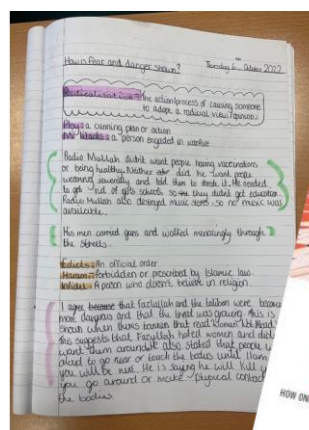 How is fear and danger shown? Tuesday 6th October 2022
Radicalisation = the action/process of causing someone
to adopt a radical view/opinion.
Ploy = a cunning plan or action
a person engaged in warfare
Radio Mullah didn't want people having vaccinations
or being healthy. Neither did he want people
wearing and told them to it. He needed
to get rid of girls schools so they didn't get education.
Radio Mullah also destroyed music stores so no music was
available.
His men carried guns and walked menacingly through
the streets.
Edicts: An official order
Haram: Forbidden or proscribed by Islamic law.
Infidel: A person who doesn't believe in religion.
I agree that Fazlullah and the taliban were
more dangerous and that the threat was growing. This is
shown when banners that read Women Not
This suggests that Fazullah hated women and
want them around. It also stated that people
to go near or touch the bodies until 11am
you will be next. He is saying he will kill
you go around or make physical contact
the bodies.
HOW ONE